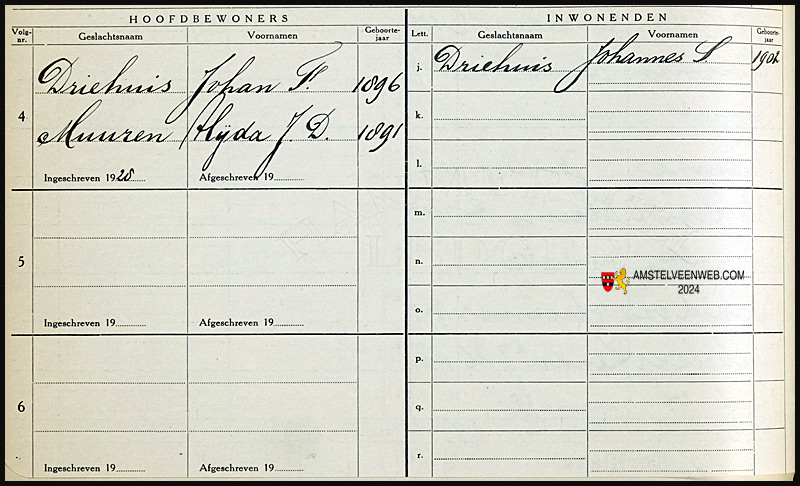 HOOFDBEWONERS
Volg-nr. Geslachtsnaam Voornamen Geboorte-jaar
4
Driehuis Johan F. 1896
Muuren Hyda J. D. 1891
Ingeschreven 1928 Afgeschreven 19
5
Ingeschreven 19 Afgeschreven 19
6
Ingeschreven 19 Afgeschreven 19
INWONENDEN
Lett. Geslachtsnaam Voornamen Geboorte-jaar
j. Driehuis Johannes S 1902
k.
l.
m.
n.
o.
p.
q.
r.
AMSTELVEENWEB.COM
2024